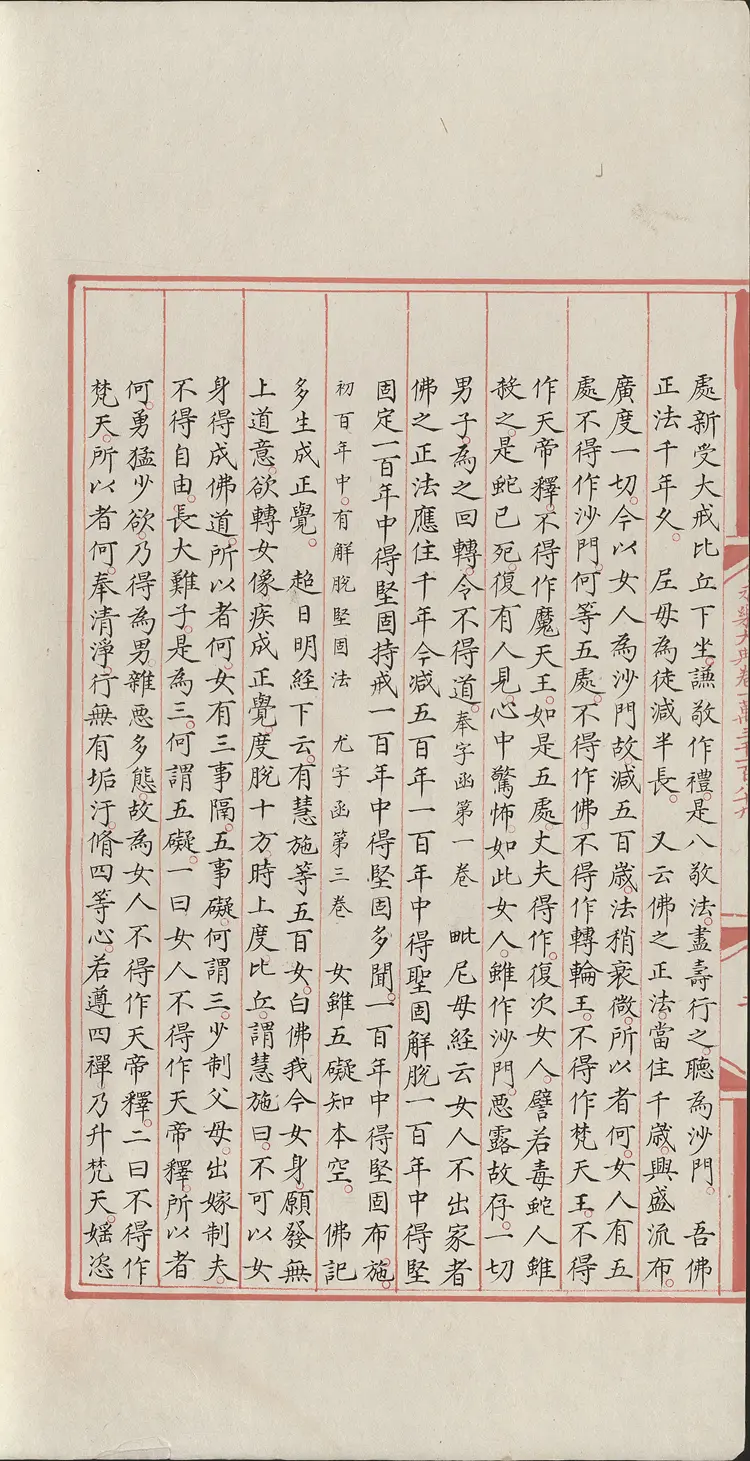 永樂大典卷一萬三千一百八十九
處新受大戒比丘下坐。謙敬作禮。是八敬法。盡壽行之。聽為沙門。 吾佛
正法千年久。 尼母為徒減半長。 又云佛之正法。當住千歲。興盛流布。
廣度一切。今以女人為沙門故減五百歲。法稍衰微。所以者何。女人有五
處不得作沙門。何等五處。不得作佛。不得作轉輪王。不得作梵天王。不得
作天帝釋。不得作魔天王。如是五處。丈夫得作。復次女人。譬若毒蛇人雖
殺之。是蛇已死。復有人見。心中驚怖。如此女人。雖作沙門。惡露故存。一切
男子。為之回轉。令不得道。奉字函第一卷 毗尼母經云女人不出家者
佛之正法應住千年今減五百年一百年中得聖固解脫一百年中得堅
固定一百年中得堅固持戒一百年中得堅固多聞。一百年中得堅固布施。
初百年中。有解脫堅固法 尤字函第三卷 女雖五礙知本空。 佛記
多生成正覺。 超日明經下云。有慧施等五百女。白佛我今女身。願發無
上道意。欲轉女像疾成正覺。度脫十方。時上度比丘。謂慧施曰。不可以女
身得成佛道。所以者何。女有三事隔。五事礙。何謂三。少制父母。出嫁制夫。
不得自由。長大難子。是為三。何謂五礙。一曰女人不得作天帝釋。所以者
何。勇猛少欲。乃得為男。雜惡多態。故為女人不得作天帝釋。二曰不得作
梵天。所以者何。奉清淨。行無有垢汙。脩四等心。若遵四禪乃升梵天。婬恣